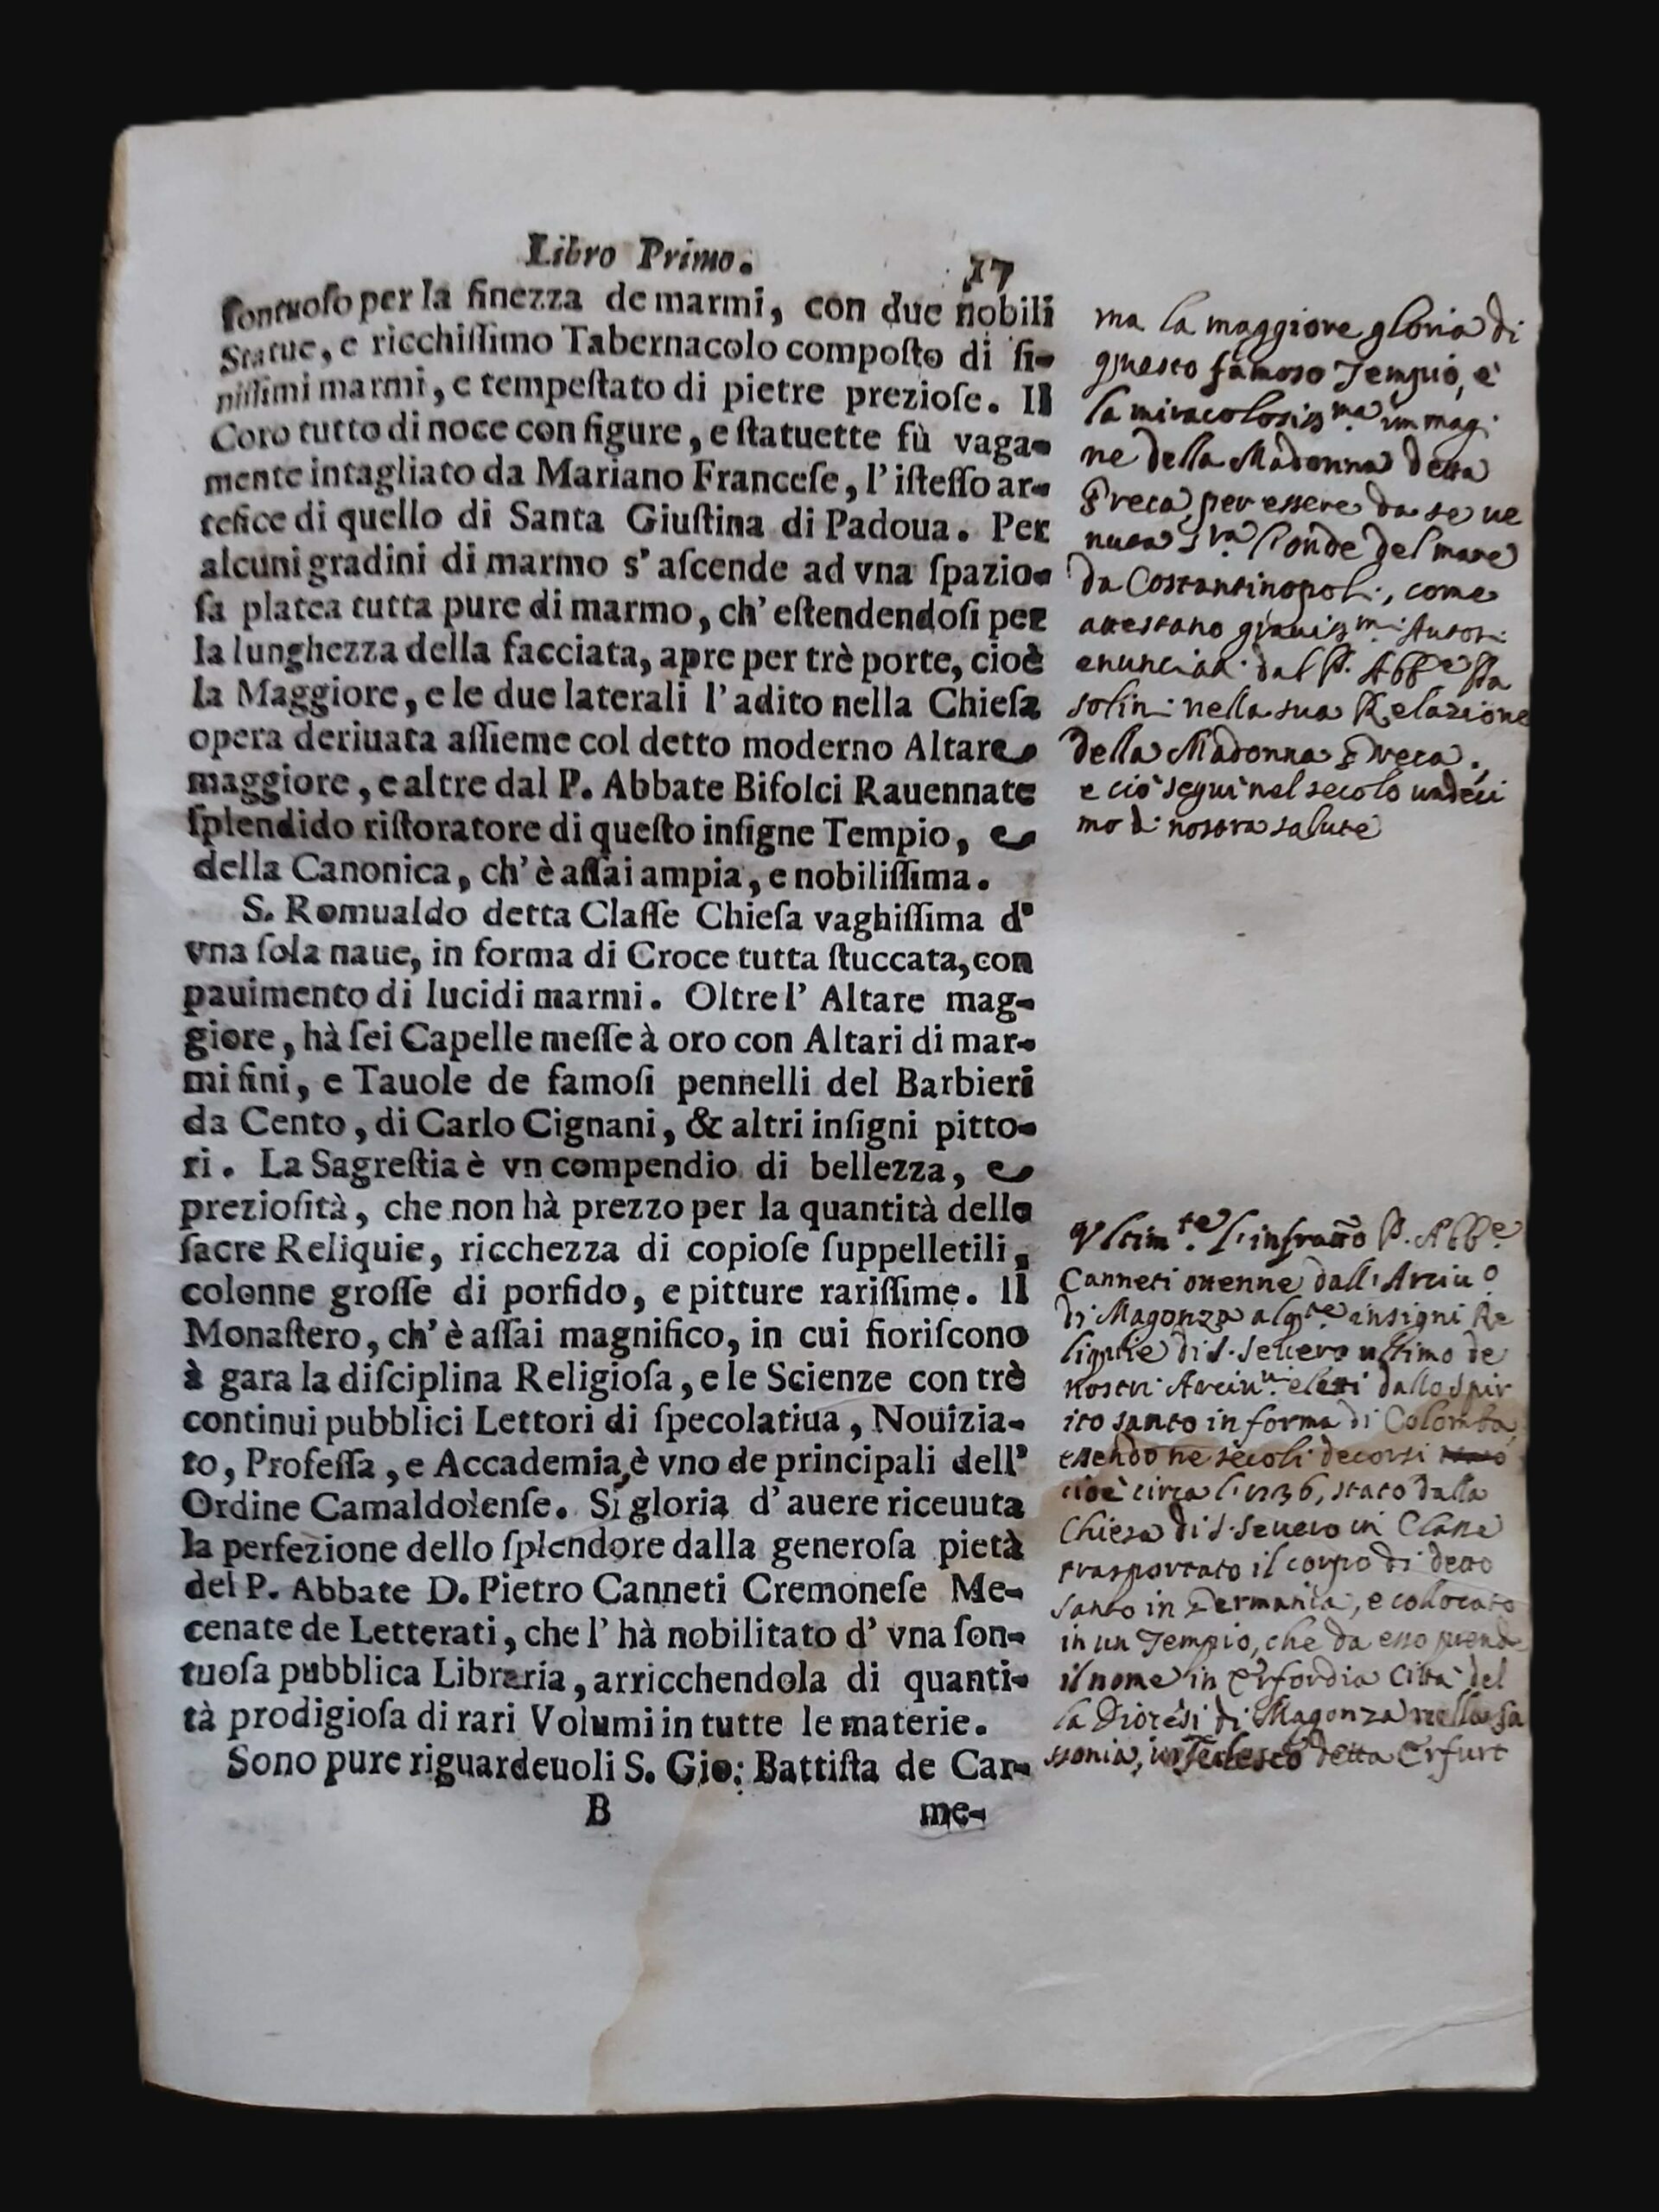 Libro Primo. 17
ſontuoſo per la finezza de marmi, con due nobili
Statue, e ricchiſſimo Tabernacolo compoſto di fi-
niſſimi marmi, e tempeſtato di pietre prezioſe. Il
Coro tutto di noce con figure, e ſtatuette fù vaga-
mente intagliato da Mariano Franceſe, l'iſteſſo ar-
tefice di quello di Santa Giuſtina di Padoua. Per
alcuni gradini di marmo s'aſcende ad vna ſpazio-
ſa platea tutta pure di marmo, ch'eſtendendoſi per
la lunghezza della facciata, apre per trè porte, cioè
la Maggiore, e le due laterali l'adito nella Chieſa
opera deriuata aſſieme col detto moderno Altare
maggiore, e altre dal P. Abbate Bifolci Rauennate
ſplendido riſtoratore di queſto inſigne Tempio, e
della Canonica, ch'è aſſai ampia, e nobiliſſima.
S. Romualdo detta Claſſe Chieſa vaghiſſima d'
vna ſola naue, in forma di Croce tutta ſtuccata, con
pauimento di lucidi marmi. Oltre l'Altare mag-
giore, hà ſei Capelle meſſe à oro con Altari di mar-
mi fini, e Tauole de famoſi pennelli del Barbieri
da Cento, di Carlo Cignani, & altri inſigni pitto-
ri. La Sagreſtia è vn compendio di bellezza, e
prezioſità, che non hà prezzo per la quantità delle
ſacre Reliquie, ricchezza di copioſe ſuppelletili,
colonne groſſe di porfido, e pitture rariſſime. Il
Monaſtero, ch'è aſſai magnifico, in cui fioriſcono
à gara la diſciplina Religioſa, e le Scienze con trè
continui pubblici Lettori di ſpecolatiua, Nouizia-
to, Profeſſa, e Accademia, è vno de principali dell'
Ordine Camaldolenſe. Si gloria d'auere riceuuta
la perfezione dello ſplendore dalla generoſa pietà
del P. Abbate D. Pietro Canneti Cremoneſe Me-
cenate de Letterati, che l'hà nobilitato d'vna ſon-
tuoſa pubblica Libraria, arricchendola di quanti-
tà prodigioſa di rari Volumi in tutte le materie.
Sono pure riguardeuoli S. Gio: Battiſta de Car-
B me-
ma la maggiore gloria di
questo famoso Tempio, è
la miracolosiss.ma immagi
ne della Madonna detta
Greca, per essere da se ve
nuta s.ra l'onde del mare
da Costantinopoli, come
attestano grauiss.mi Autori
enunciati dal P. Abb.e Pa
solini nella sua Relazione
della Madonna Greca.,
e ciò seguì nel secolo undeci
mo di nostra salute
Vltim.te l'infratto P. Abb.e
Canneti ottenne dall'Arciu.o
di Magonza alq.te insigni Re
liquie di S. Seuero ultimo de
nostri Arciu.i eletti dallo Spir
ito santo in forma di Colomba,
essendo ne secoli decorsi
cioè circa l', stato dalla
Chiesa di S. Seuero in Classe
trasportato il corpo di detto
Santo in Germania, e collocato
in un Tempio, che da esso prende
il nome in Erfordia Città del
la Diocesi di Magonza nella Sa
ssonia, in Tedesco detta Erfurt